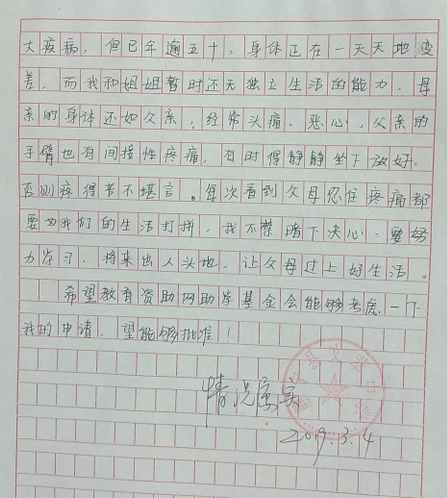 大疾病，但已年逾五十，身体正在一天天地变
差，而我和姐姐暂时还无独立生活的能力，母
亲的身体还如父亲，经常头痛、恶心，父亲的
手臂也有间接性疼痛，有时得静静坐下放好，
否则疼得苦不堪言。每次看到父母忍住疼痛都
要为我们的生活打拼，我不禁暗下决心：要努
力学习，将来出人头地，让父母过上好生活。
希望教育资助网助学基金会能够考虑一下
我的申请，望能够批准！
情况属实
2019.3.4